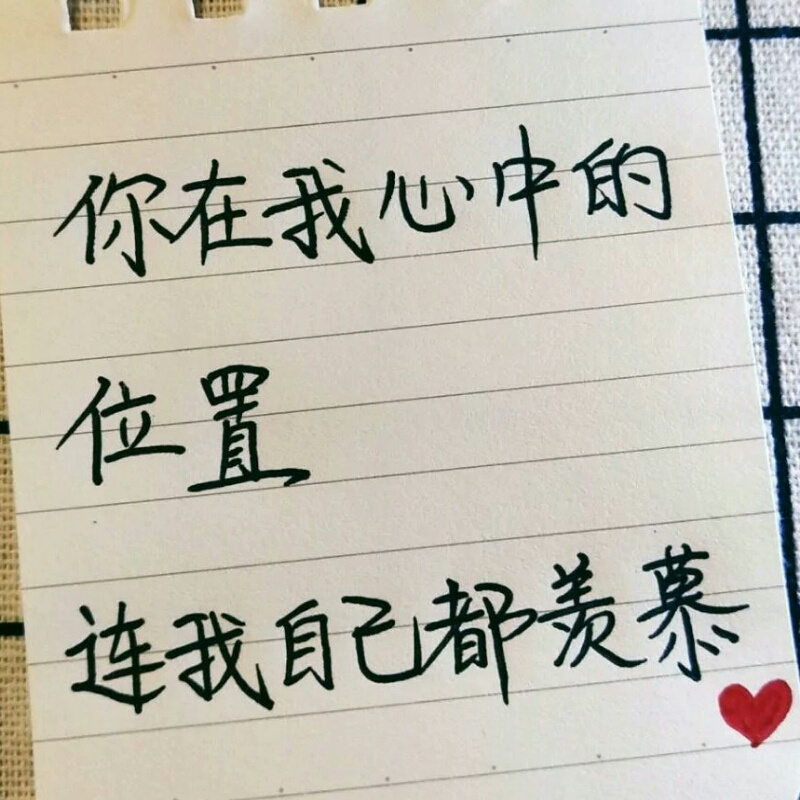 你在我心中的
位置
连我自己都羡慕